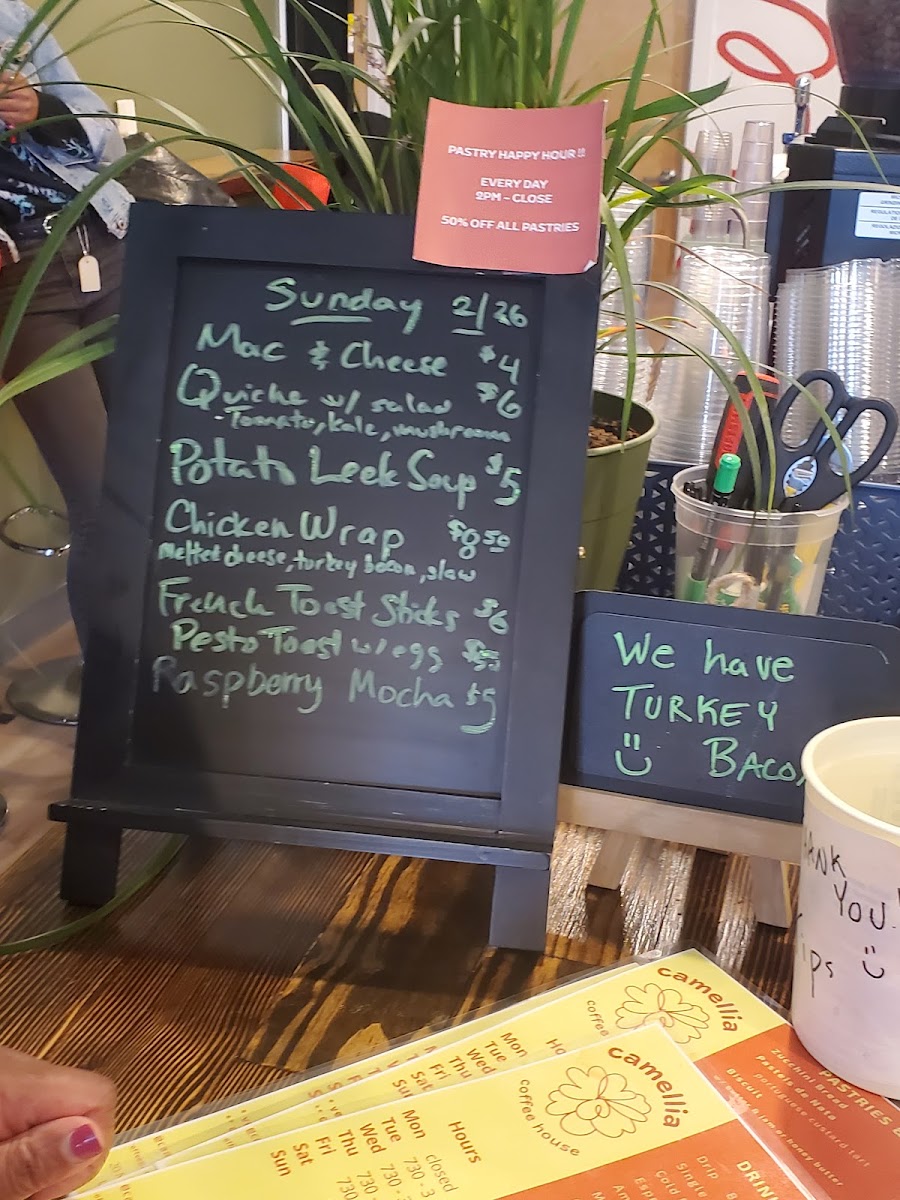 PASTRY HAPPY HOUR !!!
EVERY DAY
2PM - CLOSE
50% OFF ALL PASTRIES
Sunday 2/26
Mac & Cheese $4
Quiche w/ salad $6
- Tomato, kale, mushroom
Potato Leek Soup $5
Chicken Wrap $8.50
melted cheese, turkey bacon, slaw
French Toast Sticks $6
Pesto Toast w/ egg
Raspberry Mocha $5
We have
TURKEY
BACO
YOU!
Tips
camellia
coffee
Mon
Tue
Wed
Thu
Fri
Sat
Sun
camellia
coffee house
Hours
Mon closed
Tue 730 - 3
Wed 730 -
Thu 730
Fri
Sat
Sun
PASTRIES
Zucchini Bread
Pasteis de Nata
portuguese custard tart
Biscuit
DRIN
Drip